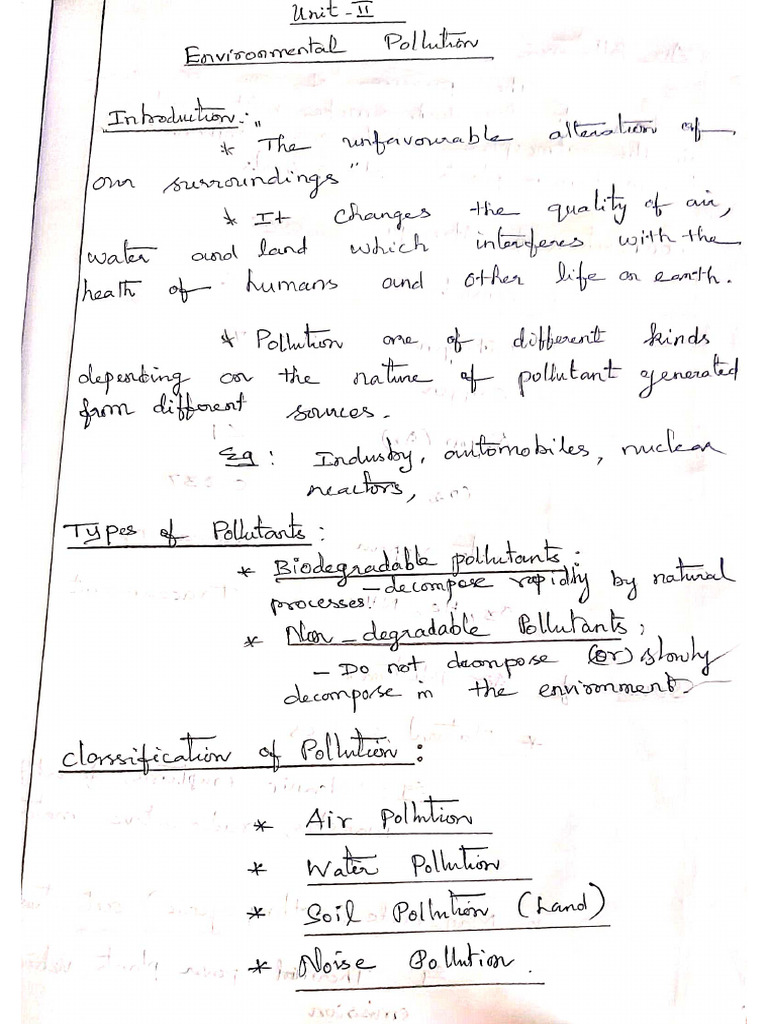 Unit - II
Environmental Pollution
Introduction:- "
* The unfavourable alteration of
our surroundings"
* It changes the quality of air,
water and land which interferes with the
heath of humans and other life on earth.
* Pollution are of different kinds
depending on the nature of pollutant generated
from different sources.
Eg : Industry, automobiles, nuclear
reactors,
Types of Pollutants :
* Biodegradable pollutants :
- decompose rapidly by natural
processes.
* Non - degradable Pollutants ;
- Do not decompose (or) slowly
decompose in the environment.
Classification of Pollution :
* Air Pollution
* Water Pollution
* Soil Pollution (Land)
* Noise Pollution.